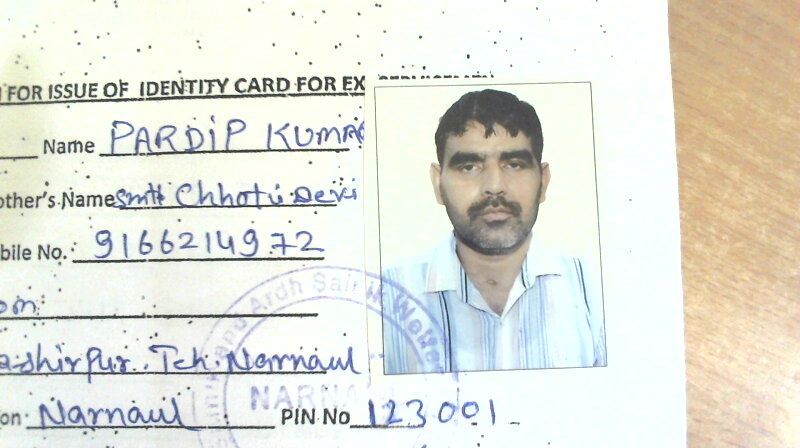 FOR ISSUE OF IDENTITY CARD FOR EX SERVICEMEN
Name PARDIP KUMAR
other's Name Smt Chhoti Devi
bile No. : 9166214972
om
ashirpur. Teh. Narnaul
on Narnaul PIN No 123001
and Ardh Sainik Welfare
NARNA